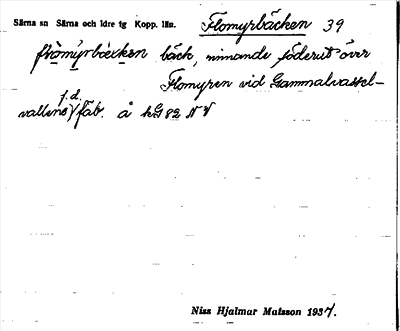 Särna sn Särna och Idre tg Kopp. län. Flomyrbäcken 39
bäck, rinnande söderut över
Flomyren vid Gammalvassel-
f.d.
vallens fäb. å kG 82 NV
Niss Hjalmar Matsson 1937.